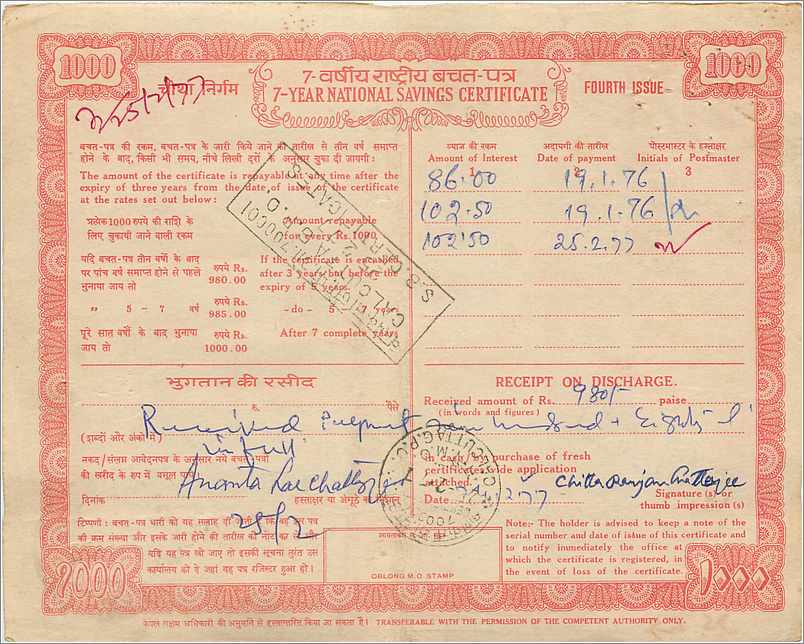 1000
1000
चौथा निर्गम
7-वर्षीय राष्ट्रीय बचत-पत्र
7-YEAR NATIONAL SAVINGS CERTIFICATE
FOURTH ISSUE
बचत-पत्र की रकम, बचत-पत्र के जारी किये जाने की तारीख से तीन वर्ष समाप्त
होने के बाद, किसी भी समय, नीचे लिखी दरों के अनुसार चुका दी जायगी:
The amount of the certificate is repayable any time after the
expiry of three years from the date of issue of the certificate
at the rates set out below:
प्रत्येक 1000 रुपये की राशि के
लिए चुकायी जाने वाली रकम
Amount repayable
for every Rs. 1000
यदि बचत-पत्र तीन वर्षों के बाद
पर पांच वर्ष समाप्त होने से पहले
भुनाया जाय तो
रुपये Rs.
980.00
If the certificate is encashed
after 3 years but before the
expiry of 5 years
" 5 - 7 वर्ष
रुपये Rs.
985.00
-do- 5 - 7 years
पूरे सात वर्षों के बाद भुनाया
जाय तो
रुपये Rs.
1000.00
After 7 complete years
ब्याज की रकम
Amount of Interest
1
अदायगी की तारीख
Date of payment
2
पोस्टमास्टर के हस्ताक्षर
Initials of Postmaster
3
86.00 19.1.76
102.50 19.1.76
102.50 25.2.77
S.B.C.R.
700001
भुगतान की रसीद
रु. पैसे
Received
in full
(शब्दों और अंकों में)
नकद/संलग्न आवेदनपत्र के अनुसार नये बचत-पत्रों
की खरीद के रूप में वसूल पाये
Ananta Lal Chatterjee
दिनांक
हस्ताक्षर या अंगूठे का निशान
25/2
RECEIPT ON DISCHARGE.
Received amount of Rs. 980/- paise
(in words and figures)
Nine hundred + Eighty
In cash/by purchase of fresh
certificates vide application
attached.
Date
Chitta Ranjan Chatterjee
Signature (s) or
thumb impression (s)
CALCUTTA G.P.O.
टिप्पणी: बचत-पत्र धारी को यह सलाह दी जाती है कि वह इस पत्र
की क्रम संख्या और इसके जारी होने की तारीख को नोट कर ले और
यदि यह पत्र खो जाए तो इसकी सूचना तुरंत उस
कार्यालय को दे जहां यह पत्र रजिस्टर हुआ हो।
OBLONG M.O. STAMP
Note:- The holder is advised to keep a note of the
serial number and date of issue of this certificate and
to notify immediately the office at
which the certificate is registered, in
the event of loss of the certificate.
1000
1000
केवल सक्षम अधिकारी की अनुमति से हस्तान्तरित किया जा सकता है। TRANSFERABLE WITH THE PERMISSION OF THE COMPETENT AUTHORITY ONLY.